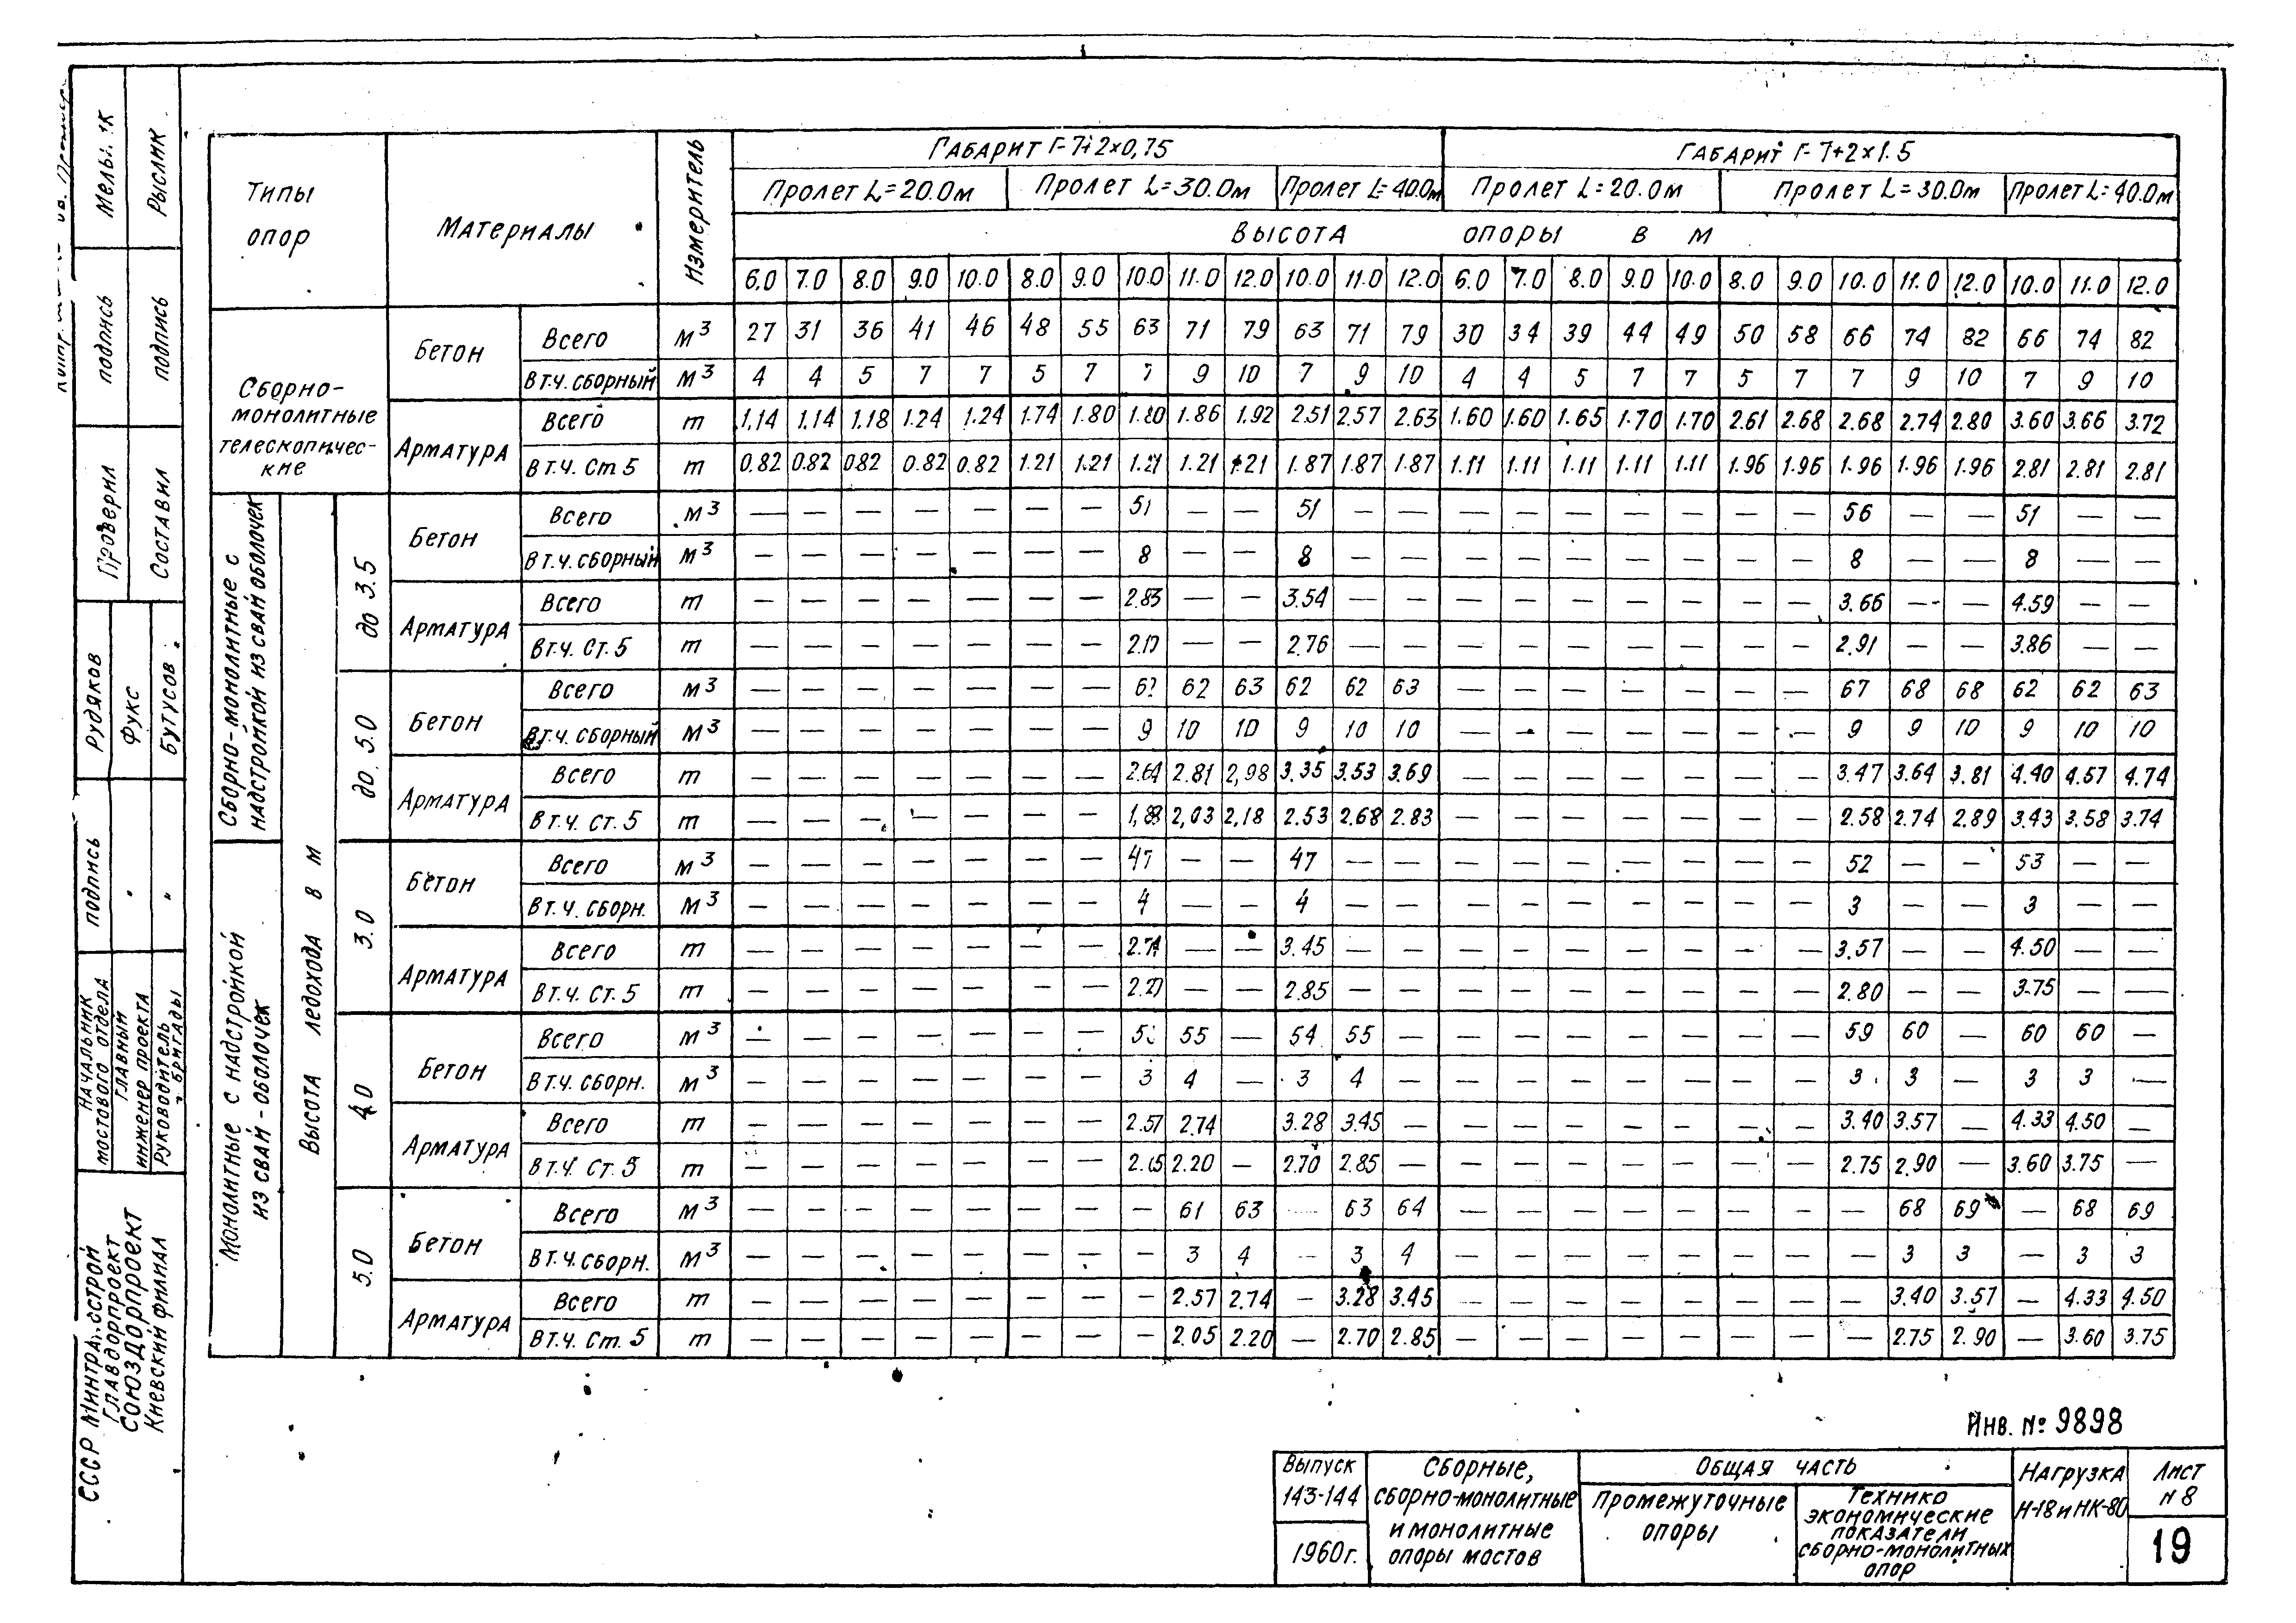 Типы опор
Материалы
Измеритель
Габарит Г-7+2×0,75
Габарит Г-7+2×1.5
Пролет L=20.0м Пролет L=30.0м Пролет L=40.0м Пролет L=20.0м Пролет L=30.0м Пролет L=40.0м
Высота опоры в м
6.0 7.0 8.0 9.0 10.0 8.0 9.0 10.0 11.0 12.0 10.0 11.0 12.0 6.0 7.0 8.0 9.0 10.0 8.0 9.0 10.0 11.0 12.0 10.0 11.0 12.0
Сборно-
монолитные
телескопичес-
кие
Бетон
Всего м3 27 31 36 41 46 48 55 63 71 79 63 71 79 30 34 39 44 49 50 58 66 74 82 66 74 82
В т.ч. сборный м3 4 4 5 7 7 5 7 7 9 10 7 9 10 4 4 5 7 7 5 7 7 9 10 7 9 10
Арматура
Всего т 1.14 1.14 1.18 1.24 1.24 1.74 1.80 1.80 1.86 1.92 2.51 2.57 2.63 1.60 1.60 1.65 1.70 1.70 2.61 2.68 2.68 2.74 2.80 3.60 3.66 3.72
В т.ч. Ст 5 т 0.82 0.82 0.82 0.82 0.82 1.21 1.21 1.21 1.21 1.21 1.87 1.87 1.87 1.11 1.11 1.11 1.11 1.11 1.96 1.96 1.96 1.96 1.96 2.81 2.81 2.81
Сборно-монолитные с
надстройкой из свай оболочек
Высота ледохода в м
до 3.5
Бетон
Всего м3 — — — — — — — 51 — — 51 — — — — — — — — — 56 — — 51 — —
В т.ч. сборный м3 — — — — — — — 8 — — 8 — — — — — — — — — 8 — — 8 — —
Арматура
Всего т — — — — — — — 2.83 — — 3.54 — — — — — — — — — 3.66 — — 4.59 — —
В т.ч. Ст. 5 т — — — — — — — — — 2.76 — — — — — — — — — 2.91 — — 3.86 — —
до 5.0
Бетон
Всего м3 — — — — — — — 62 62 63 62 62 63 — — — — — — — 67 68 68 62 62 63
В т.ч. сборный м3 — — — — — — — 9 10 10 9 10 10 — — — — — — — 9 9 10 9 10 10
Арматура
Всего т — — — — — — — 2.64 2.81 2,98 3.35 3.53 3.69 — — — — — — — 3.47 3.64 3.81 4.40 4.57 4.74
В т.ч. ст. 5 т — — — — — — — 1,88 2,03 2,18 2.53 2.68 2.83 — — — — — — — 2.58 2.74 2.89 3.43 3.58 3.74
Монолитные с надстройкой
из свай-оболочек
3.0
Бетон
Всего м3 — — — — — — — 47 — — 47 — — — — — — — — — 52 — — 53 — —
В т.ч. сборн. м3 — — — — — — — 4 — — 4 — — — — — — — — — 3 — — 3 — —
Арматура
Всего т — — — — — — — 2.74 — — 3.45 — — — — — — — — — 3.57 — — 4.50 — —
В т.ч. Ст. 5 т — — — — — — — — — 2.85 — — — — — — — — — 2.80 — — 3.75 — —
4.0
Бетон
Всего м3 — — — — — — — 55 — 54 55 — — — — — — — — 59 60 — 60 60 —
В т.ч. сборн. м3 — — — — — — — 3 4 — 3 4 — — — — — — — — 3 3 — 3 3 —
Арматура
Всего т — — — — — — — 2.57 2.74 3.28 3.45 — — — — — — — — 3.40 3.57 — 4.33 4.50 —
В т.ч. Ст. 5 т — — — — — — — 2.05 2.20 — 2.70 2.85 — — — — — — — — 2.75 2.90 — 3.60 3.75 —
5.0
Бетон
Всего м3 — — — — — — — — 61 63 — 63 64 — — — — — — — — 68 69 — 68 69
В т.ч. сборн. м3 — — — — — — — — 3 4 — 3 4 — — — — — — — — 3 3 — 3 3
Арматура
Всего т — — — — — — — — 2.57 2.74 — 3.28 3.45 — — — — — — — — 3.40 3.57 — 4.33 4.50
В т.ч. Ст. 5 т — — — — — — — — 2.05 2.20 — 2.70 2.85 — — — — — — — — 2.75 2.90 — 3.60 3.75
Рыслик
подпись
подпись
Проверил
Составил
Рудяков
Фукс
Бутусов
подпись
"
"
Начальник
мостового отдела
Главным
инженер проекта
Руководитель
бригады
СССР
Главдорпроект
Союздорпроект
Киевский филиал
Инв. № 9898
Выпуск
143-144
1960г.
Сборные,
сборно-монолитные
и монолитные
опоры мостов
Общая часть
Промежуточные
опоры
Технико
экономические
показатели
сборно-монолитных
опор
Нагрузка
Н-18 и НК-80
Лист
N 8
19